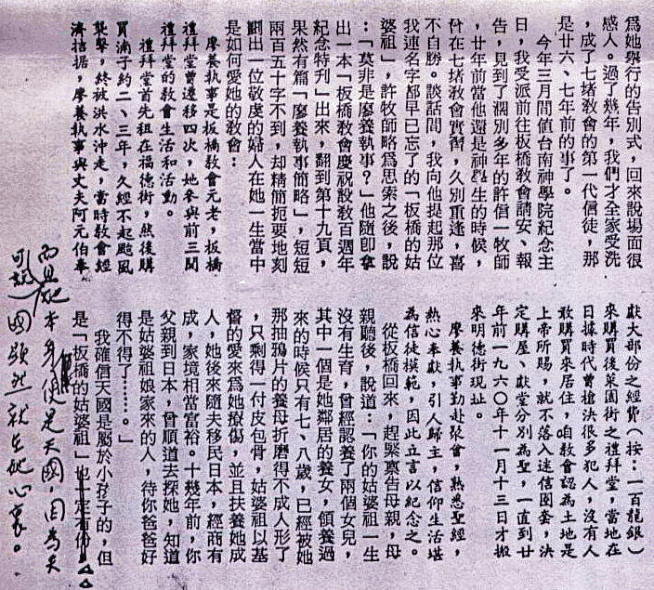 為她舉行的告別式,回來說場面很
感人。過了幾年,我們才全家受洗
,成了七堵教會的第一代信徒,那
是廿六、七年前的事了。
今年三月間值台南神學院紀念主
日,我受派前往板橋教會請安、報
告,見到了濶別多年的許信一牧師
,廿年前當他還是神學生的時候,
在七堵教會實習,久別重逢,喜
不自勝。談話間,我向他提起那位
我連名字都早已忘了的「板橋的姑
婆祖」,許牧師略為思索之後,說
:「莫非是廖養執事?」他隨即拿
出一本「板橋教會慶祝設教百週年
紀念特刊」出來,翻到第十九頁,
果然有篇「廖養執事簡略」,短短
兩百五十字不到,却精簡扼要地刻
劃出一位敬虔的婦人在她一生當中
是如何愛她的教會:
廖養執事是板橋教會元老,板橋
禮拜堂曾遷移四次,她參與前三間
禮拜堂的教會生活和活動。
禮拜堂首先租在福德街,然後購
買湳子約二、三年,久經不起颱風
襲擊,終被洪水沖走,當時教會經
濟拮据,廖養執事與丈夫阿元伯奉
獻大部份之經費(按:一百龍銀)
來購買後菜園街之禮拜堂,當地在
日據時代曾搶決很多犯人,沒有人
敢購買來居住,咱教會認為土地是
上帝所賜,就不落入迷信圈套,決
定購屋、獻堂分別為聖,一直到廿
年前一九六○年十一月十三日才搬
來明德街現址。
廖養執事勤赴聚會,熟悉聖經,
熱心奉獻,引人歸主,信仰生活堪
為信徒模範,因此立言以紀念之。
從板橋回來,趕緊稟告母親,母
親聽後,說道:「你的姑婆祖一生
沒有生育,曾經認養了兩個女兒,
其中一個是她鄰居的養女,領養過
來的時候只有七、八歲,已經被她
那抽鴉片的養母折磨得不成人形了
,只剩得一付皮包骨,姑婆祖以基
督的愛來為她療傷,並且扶養她成
人,她後來隨夫移民日本,經商有
成,家境相當富裕。十幾年前,你
父親到日本,曾順道去探她,知道
是姑婆祖娘家來的人,待你爸爸好
得不得了……。」
我確信天國是屬於小孩子的,但
是「板橋的姑婆祖」也一定有份
而且她本身便是天國,因為天
國顯然就在她心裏。